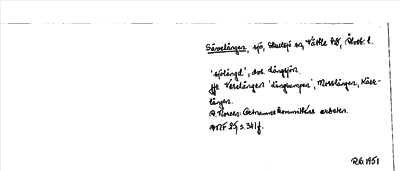 Sävelången, sjö, Skallsjö sn, Vättle hd, Älvsb. l.
'sjölängd', dvs. långsjön.
Jfr Veselången 'långrumpa', Mosslången, Käst-
lången.
A. Noreen: Ortnamnskommitténs arbeten.
ANF 25 s. 341 f.
R.G. 1951